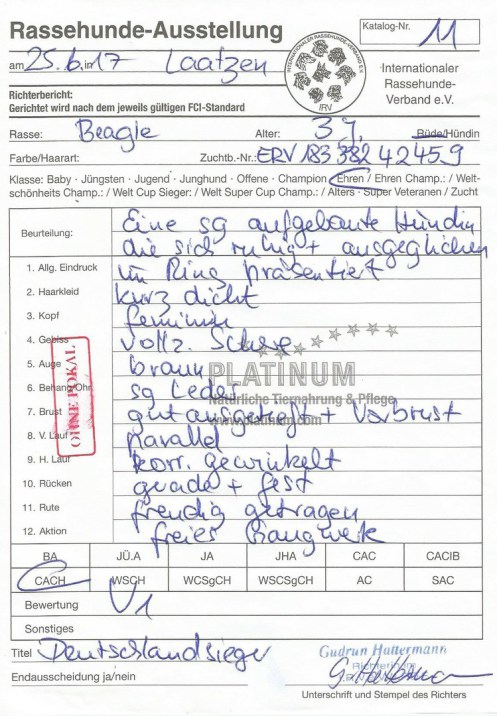 Rassehunde-Ausstellung
Katalog-Nr. 11
am 25.6. in 17 Laatzen
INTERNATIONALER RASSEHUNDE-VERBAND E.V.
IRV
Internationaler
Rassehunde-
Verband e.V.
Richterbericht:
Gerichtet wird nach dem jeweils gültigen FCI-Standard
Rasse: Beagle Alter: 3 J. Rüde/Hündin
Farbe/Haarart: Zuchtb.-Nr.: ERV 183 382 42459
Klasse: Baby · Jüngsten · Jugend · Junghund · Offene · Champion Ehren / Ehren Champ.: / Welt-
schönheits Champ.: / Welt Cup Sieger: / Welt Super Cup Champ.: / Alters · Super Veteranen / Zucht
Beurteilung: Eine sg aufgebaute Hündin
die sich ruhig + ausgeglichen
1. Allg. Eindruck im Ring präsentiert
2. Haarkleid kurz dicht
3. Kopf feminin
4. Gebiss vollz. Schere
5. Auge braun
PLATINUM
6. Behang/Ohr sg Leder
Natürliche Tiernahrung & Pflege
7. Brust gut ausgereift + Vorbrust
www.platinum.com
8. V. Lauf parallel
9. H. Lauf korr. gewinkelt
10. Rücken gerade + fest
11. Rute freudig getragen
12. Aktion freies Gangwerk
OHNE POKAL
BA JÜ.A JA JHA CAC CACIB
CACH WSGH WCSgCH WSCSgCH AC SAC
Bewertung V1
Sonstiges
Titel Deutschlandsieger
Gudrun Hattermann
Endausscheidung ja/nein
Unterschrift und Stempel des Richters